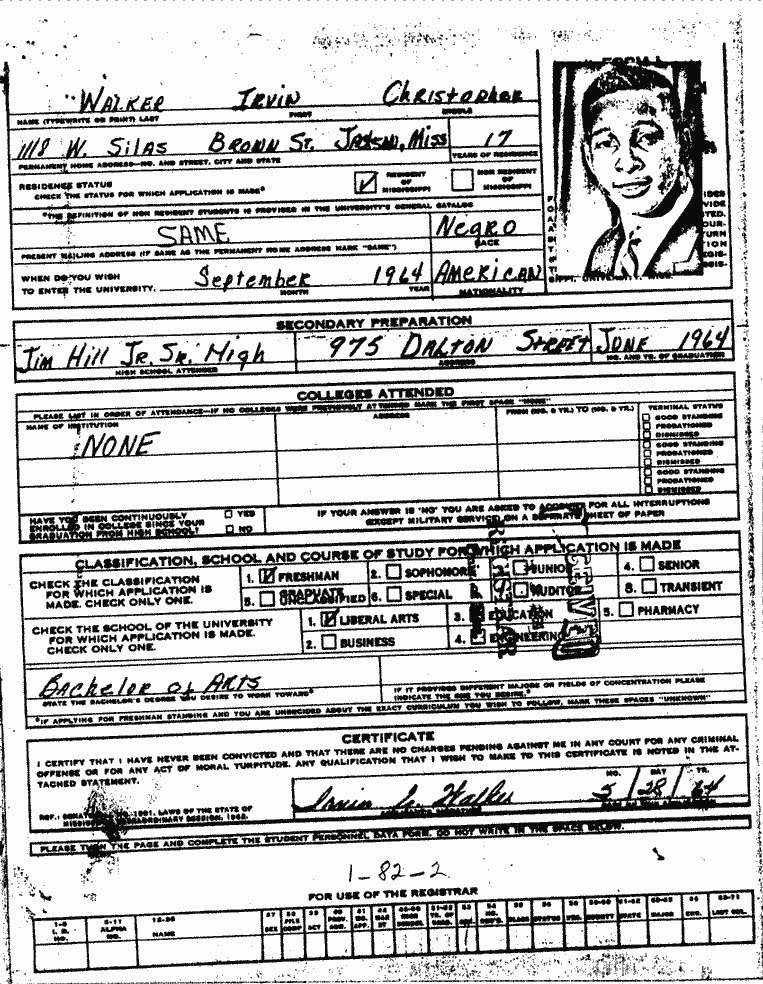 WALKER IRVIN CHRISTOPHER
NAME (TYPEWRITE OR PRINT) LAST FIRST MIDDLE
1118 W. Silas Brown St. Jackson, Miss 17
PERMANENT HOME ADDRESS—NO. AND STREET, CITY AND STATE YEARS OF RESIDENCE
RESIDENCE STATUS
CHECK THE STATUS FOR WHICH APPLICATION IS MADE*
RESIDENT OF MISSISSIPPI
NON RESIDENT OF MISSISSIPPI
*THE DEFINITION OF NON RESIDENT STUDENTS IS PROVIDED IN THE UNIVERSITY'S GENERAL CATALOG
SAME Negro
PRESENT MAILING ADDRESS (IF SAME AS THE PERMANENT HOME ADDRESS MARK "SAME") RACE
WHEN DO YOU WISH
TO ENTER THE UNIVERSITY. September 1964 AMERICAN
MONTH YEAR NATIONALITY
SECONDARY PREPARATION
Jim Hill Jr. Sr. High 975 DALTON STREET JUNE 1964
HIGH SCHOOL ATTENDED ADDRESS MO. AND YR. OF GRADUATION
COLLEGES ATTENDED
PLEASE LIST IN ORDER OF ATTENDANCE—IF NO COLLEGES WERE PREVIOUSLY ATTENDED MARK THE FIRST SPACE "NONE"
NAME OF INSTITUTION ADDRESS FROM (MO. & YR.) TO (MO. & YR.) TERMINAL STATUS
NONE
GOOD STANDING
PROBATIONED
DISMISSED
GOOD STANDING
PROBATIONED
DISMISSED
GOOD STANDING
PROBATIONED
DISMISSED
HAVE YOU BEEN CONTINUOUSLY
ENROLLED IN COLLEGE SINCE YOUR
GRADUATION FROM HIGH SCHOOL?
YES
NO
IF YOUR ANSWER IS 'NO' YOU ARE ASKED TO ACCOUNT FOR ALL INTERRUPTIONS
(EXCEPT MILITARY SERVICE) ON A SEPARATE SHEET OF PAPER
CLASSIFICATION, SCHOOL AND COURSE OF STUDY FOR WHICH APPLICATION IS MADE
CHECK THE CLASSIFICATION
FOR WHICH APPLICATION IS
MADE. CHECK ONLY ONE.
1. FRESHMAN 2. SOPHOMORE JUNIOR 4. SENIOR
5. GRADUATE UNCLASSIFIED 6. SPECIAL AUDITOR 8. TRANSIENT
CHECK THE SCHOOL OF THE UNIVERSITY
FOR WHICH APPLICATION IS MADE.
CHECK ONLY ONE.
1. LIBERAL ARTS 3. EDUCATION 5. PHARMACY
2. BUSINESS 4. ENGINEERING
RECEIVED
REGISTRAR
Bachelor of Arts
STATE THE BACHELOR'S DEGREE YOU DESIRE TO WORK TOWARD*
IF IT PROVIDES DIFFERENT MAJORS OR FIELDS OF CONCENTRATION PLEASE
INDICATE THE ONE YOU DESIRE.*
*IF APPLYING FOR FRESHMAN STANDING AND YOU ARE UNDECIDED ABOUT THE EXACT CURRICULUM YOU WISH TO FOLLOW, MARK THESE SPACES "UNKNOWN"
CERTIFICATE
I CERTIFY THAT I HAVE NEVER BEEN CONVICTED AND THAT THERE ARE NO CHARGES PENDING AGAINST ME IN ANY COURT FOR ANY CRIMINAL
OFFENSE OR FOR ANY ACT OF MORAL TURPITUDE. ANY QUALIFICATION THAT I WISH TO MAKE TO THIS CERTIFICATE IS NOTED IN THE AT-
TACHED STATEMENT.
MO. DAY YR.
Irvin C. Walker 5 / 28 / 64
LAWS OF THE STATE OF
PLEASE TURN THE PAGE AND COMPLETE THE STUDENT PERSONNEL DATA FORM. DO NOT WRITE IN THE SPACE BELOW.
1-82-2
FOR USE OF THE REGISTRAR
NAME SEX